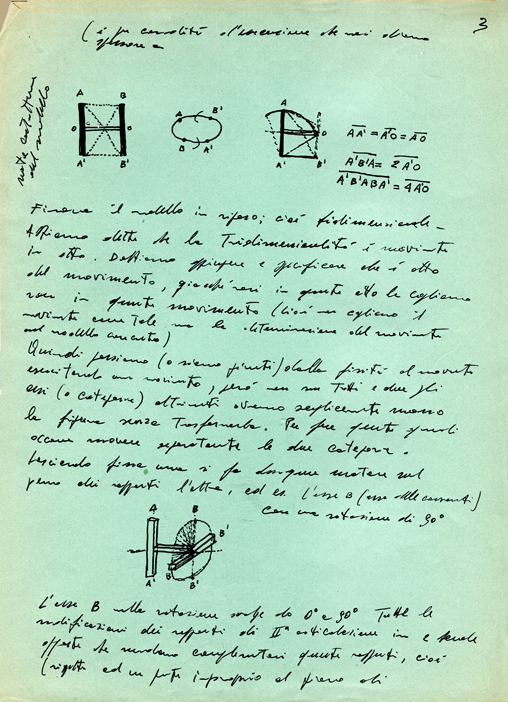 3
(è per comodità d'esecuzione che noi diremo
spesso
note costruttive
del modello
A B
O O
A' B'
A B'
B A'
A B
O
A' B'
AA' = A'O = AO
A'B'A = 2 A'O
A'B'ABA' = 4 A'O
Finora il modello in riposo; cioè bidimensionale -
Abbiamo detto che la Tridimensionalità è movimento
in atto. Dobbiamo spiegare e specificare che è atto
del movimento, giacché noi in questo atto la cogliamo
non in quanto movimento (cioè non cogliamo il
movimento come tale ma la determinazione del movimento
nel modello concreto)
Quindi possiamo (o siamo giunti) dalla fissità al movimento
esercitando un movimento, però non su tutti e due gli
assi (o categorie) altrimenti avremo semplicemente mosso
la figura senza trasformarla. Per fare questo quindi
occorre muovere separatamente le due categorie.
Lasciando fissa una si fa dunque ruotare sul
perno dei rapporti l'altra, ad es. l'asse B (asse delle correnti)
con una rotazione di 90°
A B B'
A' B B'
L'asse B nella rotazione svolge da 0° a 90° Tutte le
modificazioni dei rapporti di IIª articolazione in 2 scale
opposte che rendono complementari questi rapporti, cioè
(rispetto ad un punto improprio al piano di